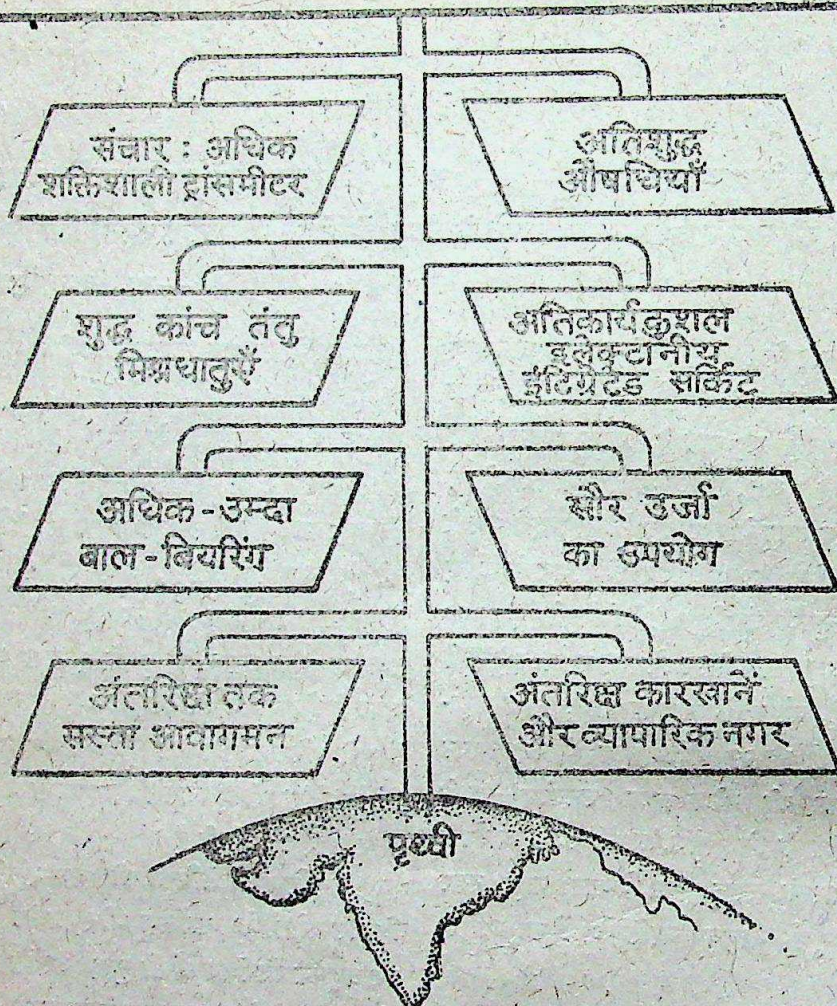 संचार : अधिक
शक्तिशाली ट्रांसमीटर
अतिशुद्ध
औषधियाँ
शुद्ध कांच तंतु
मिश्रधातुएँ
अतिकार्यकुशल
इलेक्ट्रानीय
इंटिग्रेटेड सर्किट
अधिक - उम्दा
बाल - बियरिंग
सौर उर्जा
का उपयोग
अंतरिक्ष तक
सस्ता आवागमन
अंतरिक्ष कारखानें
और व्यापारिक नगर
पृथ्वी